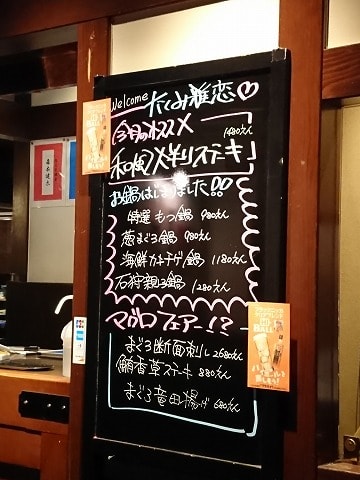 Welcome たくみ雅恋♡
今月のオススメ
和風メバチステーキ」
1480えん
お鍋はじまりました!!
特選 もつ鍋 980えん
葱まぐろ鍋 980えん
海鮮カキチゲ鍋 1180えん
石狩親子鍋 1280えん
マグロフェアー!?
まぐろ断面刺し 2680えん
鮪香草ステーキ 880えん
まぐろ竜田揚げ 680えん